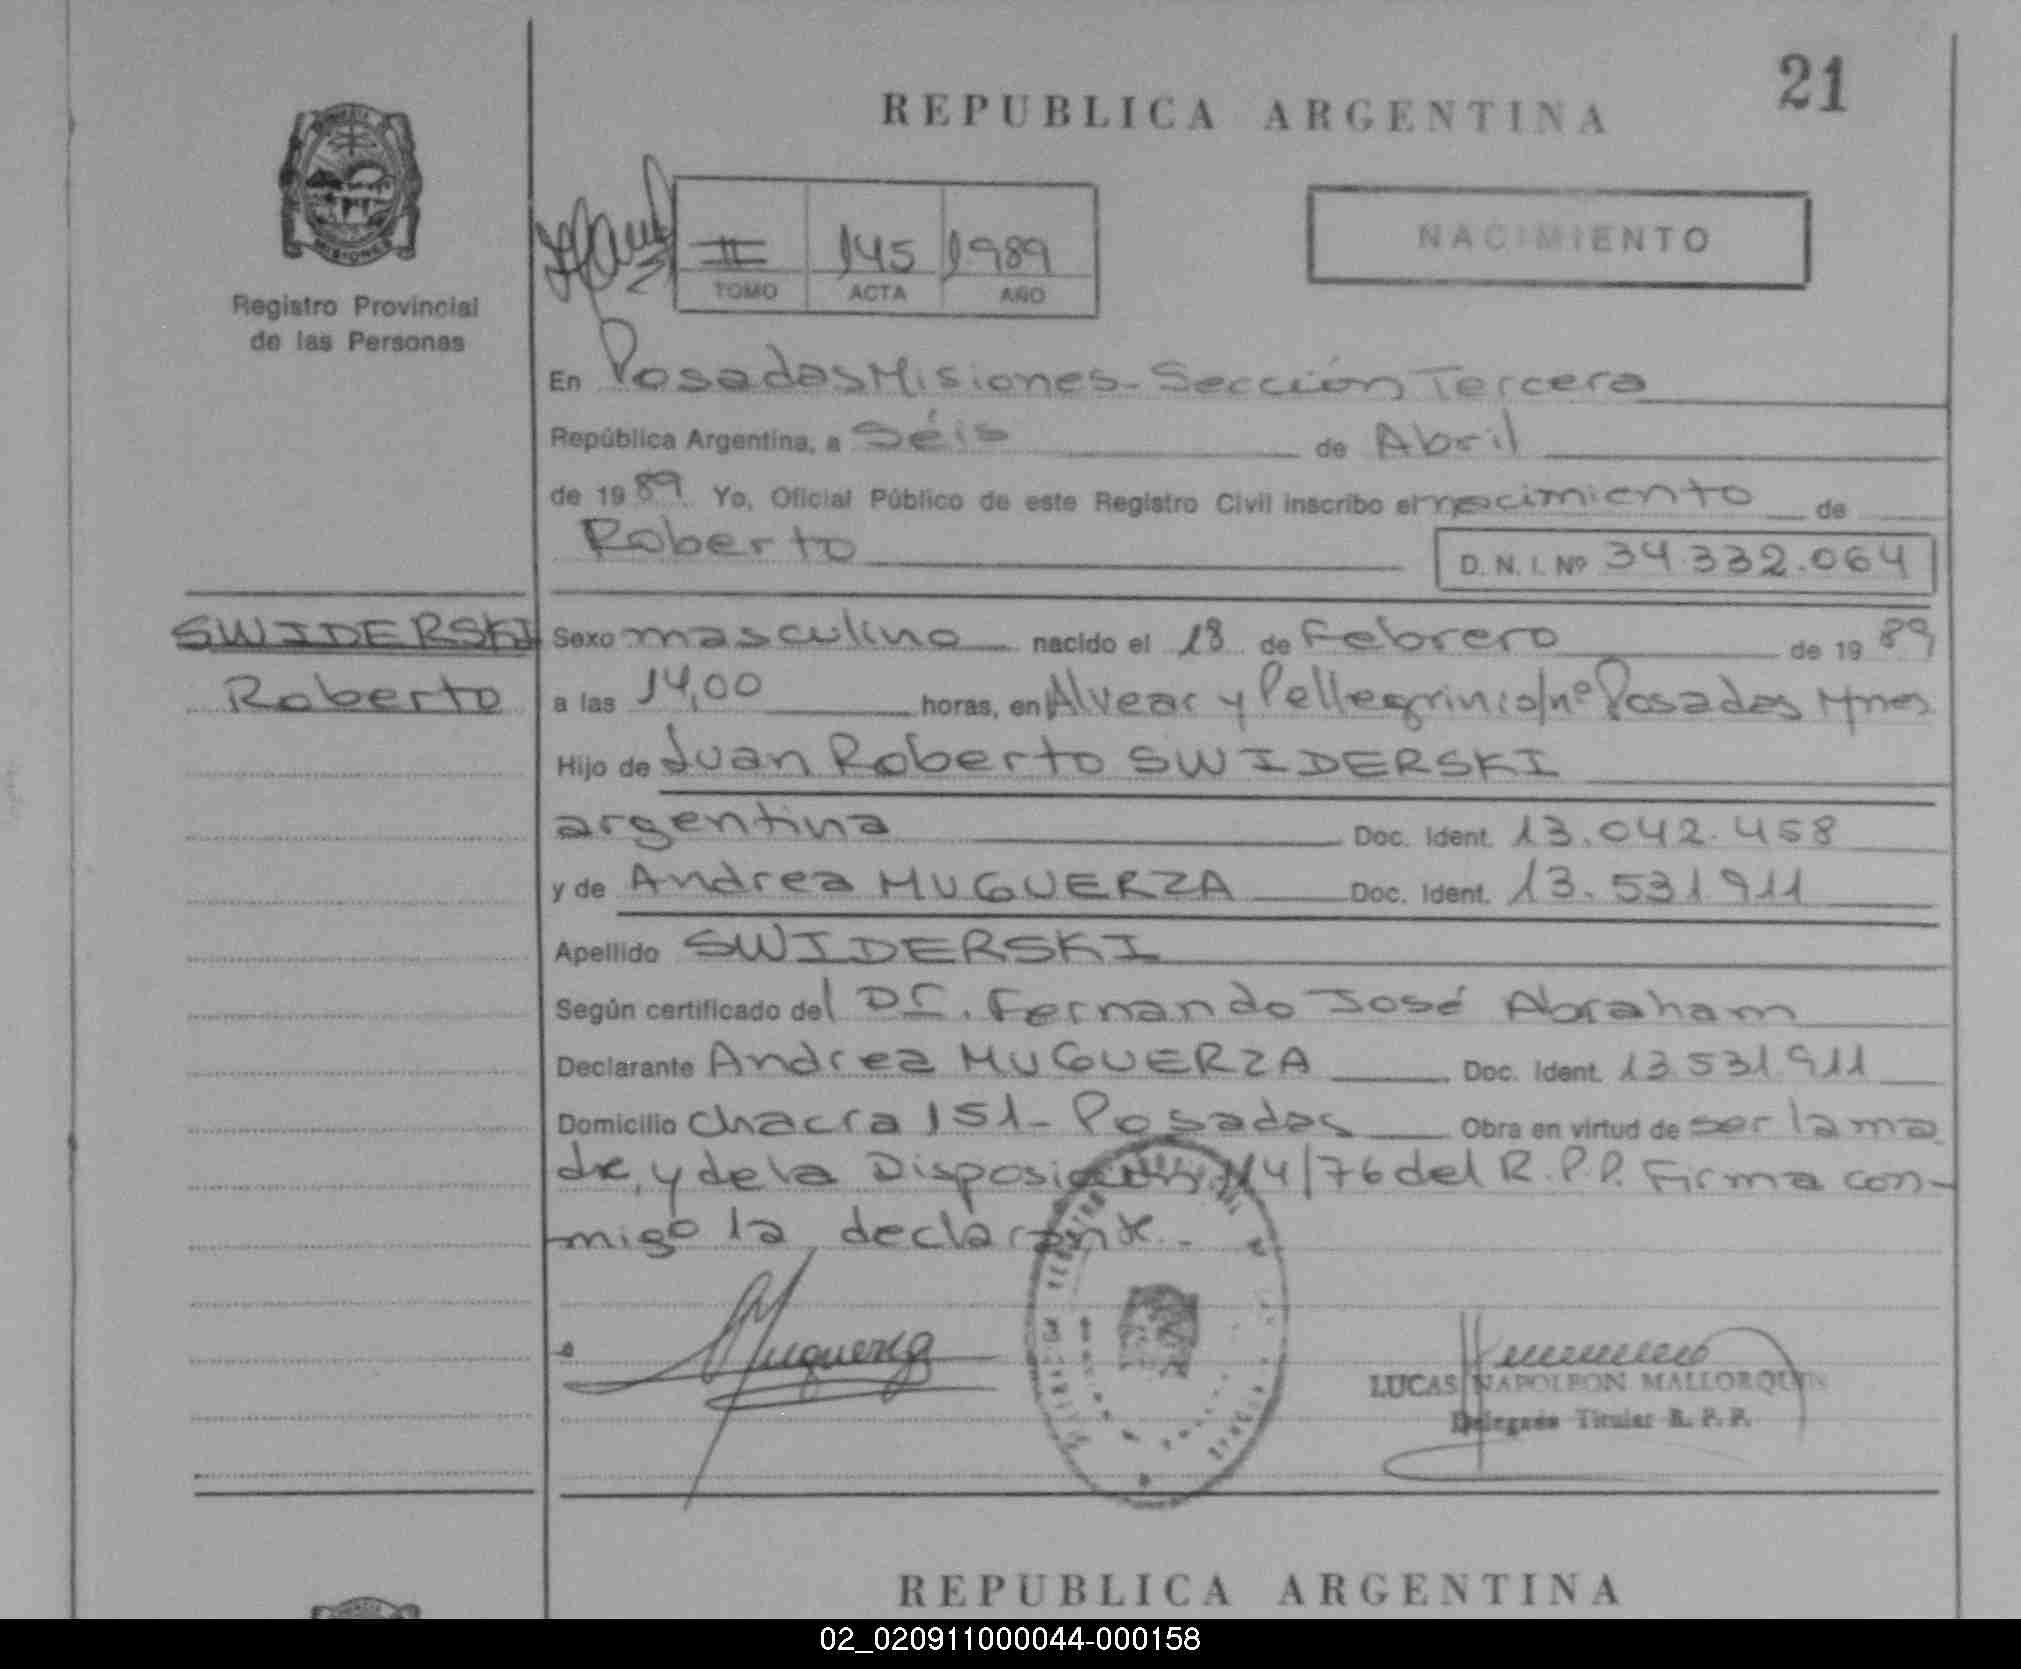 21
REPUBLICA ARGENTINA
NACIMIENTO
II 145 1989
TOMO ACTA AÑO
MISIONES
Registro Provincial
de las Personas
En Posadas Misiones - Sección Tercera
República Argentina, a Séis de Abril
de 1989 Yo, Oficial Público de este Registro Civil inscribo el nacimiento de
Roberto D. N. I. Nº 34.332.064
SWIDERSKI
Roberto
Sexo masculino nacido el 18 de Febrero de 1989
a las 14,00 horas, en Alvear y Pellegrini s/nº Posadas Mnes
Hijo de Juan Roberto SWIDERSKI
argentina Doc. Ident. 13.042.458
y de Andrea MUGUERZA Doc. Ident. 13.531911
Apellido SWIDERSKI
Según certificado del Dr. Fernando José Abraham
Declarante Andrea MUGUERZA Doc. Ident. 13531911
Domicilio Chacra 151 - Posadas Obra en virtud de ser la ma
dre, y de la Disposición 114/76 del R.P.P. Firma con-
migo la declarante.-
Muguerza
LUCAS NAPOLEON MALLORQUIN
Delegado Titular R. P. P.
REPUBLICA ARGENTINA
02_020911000044-000158